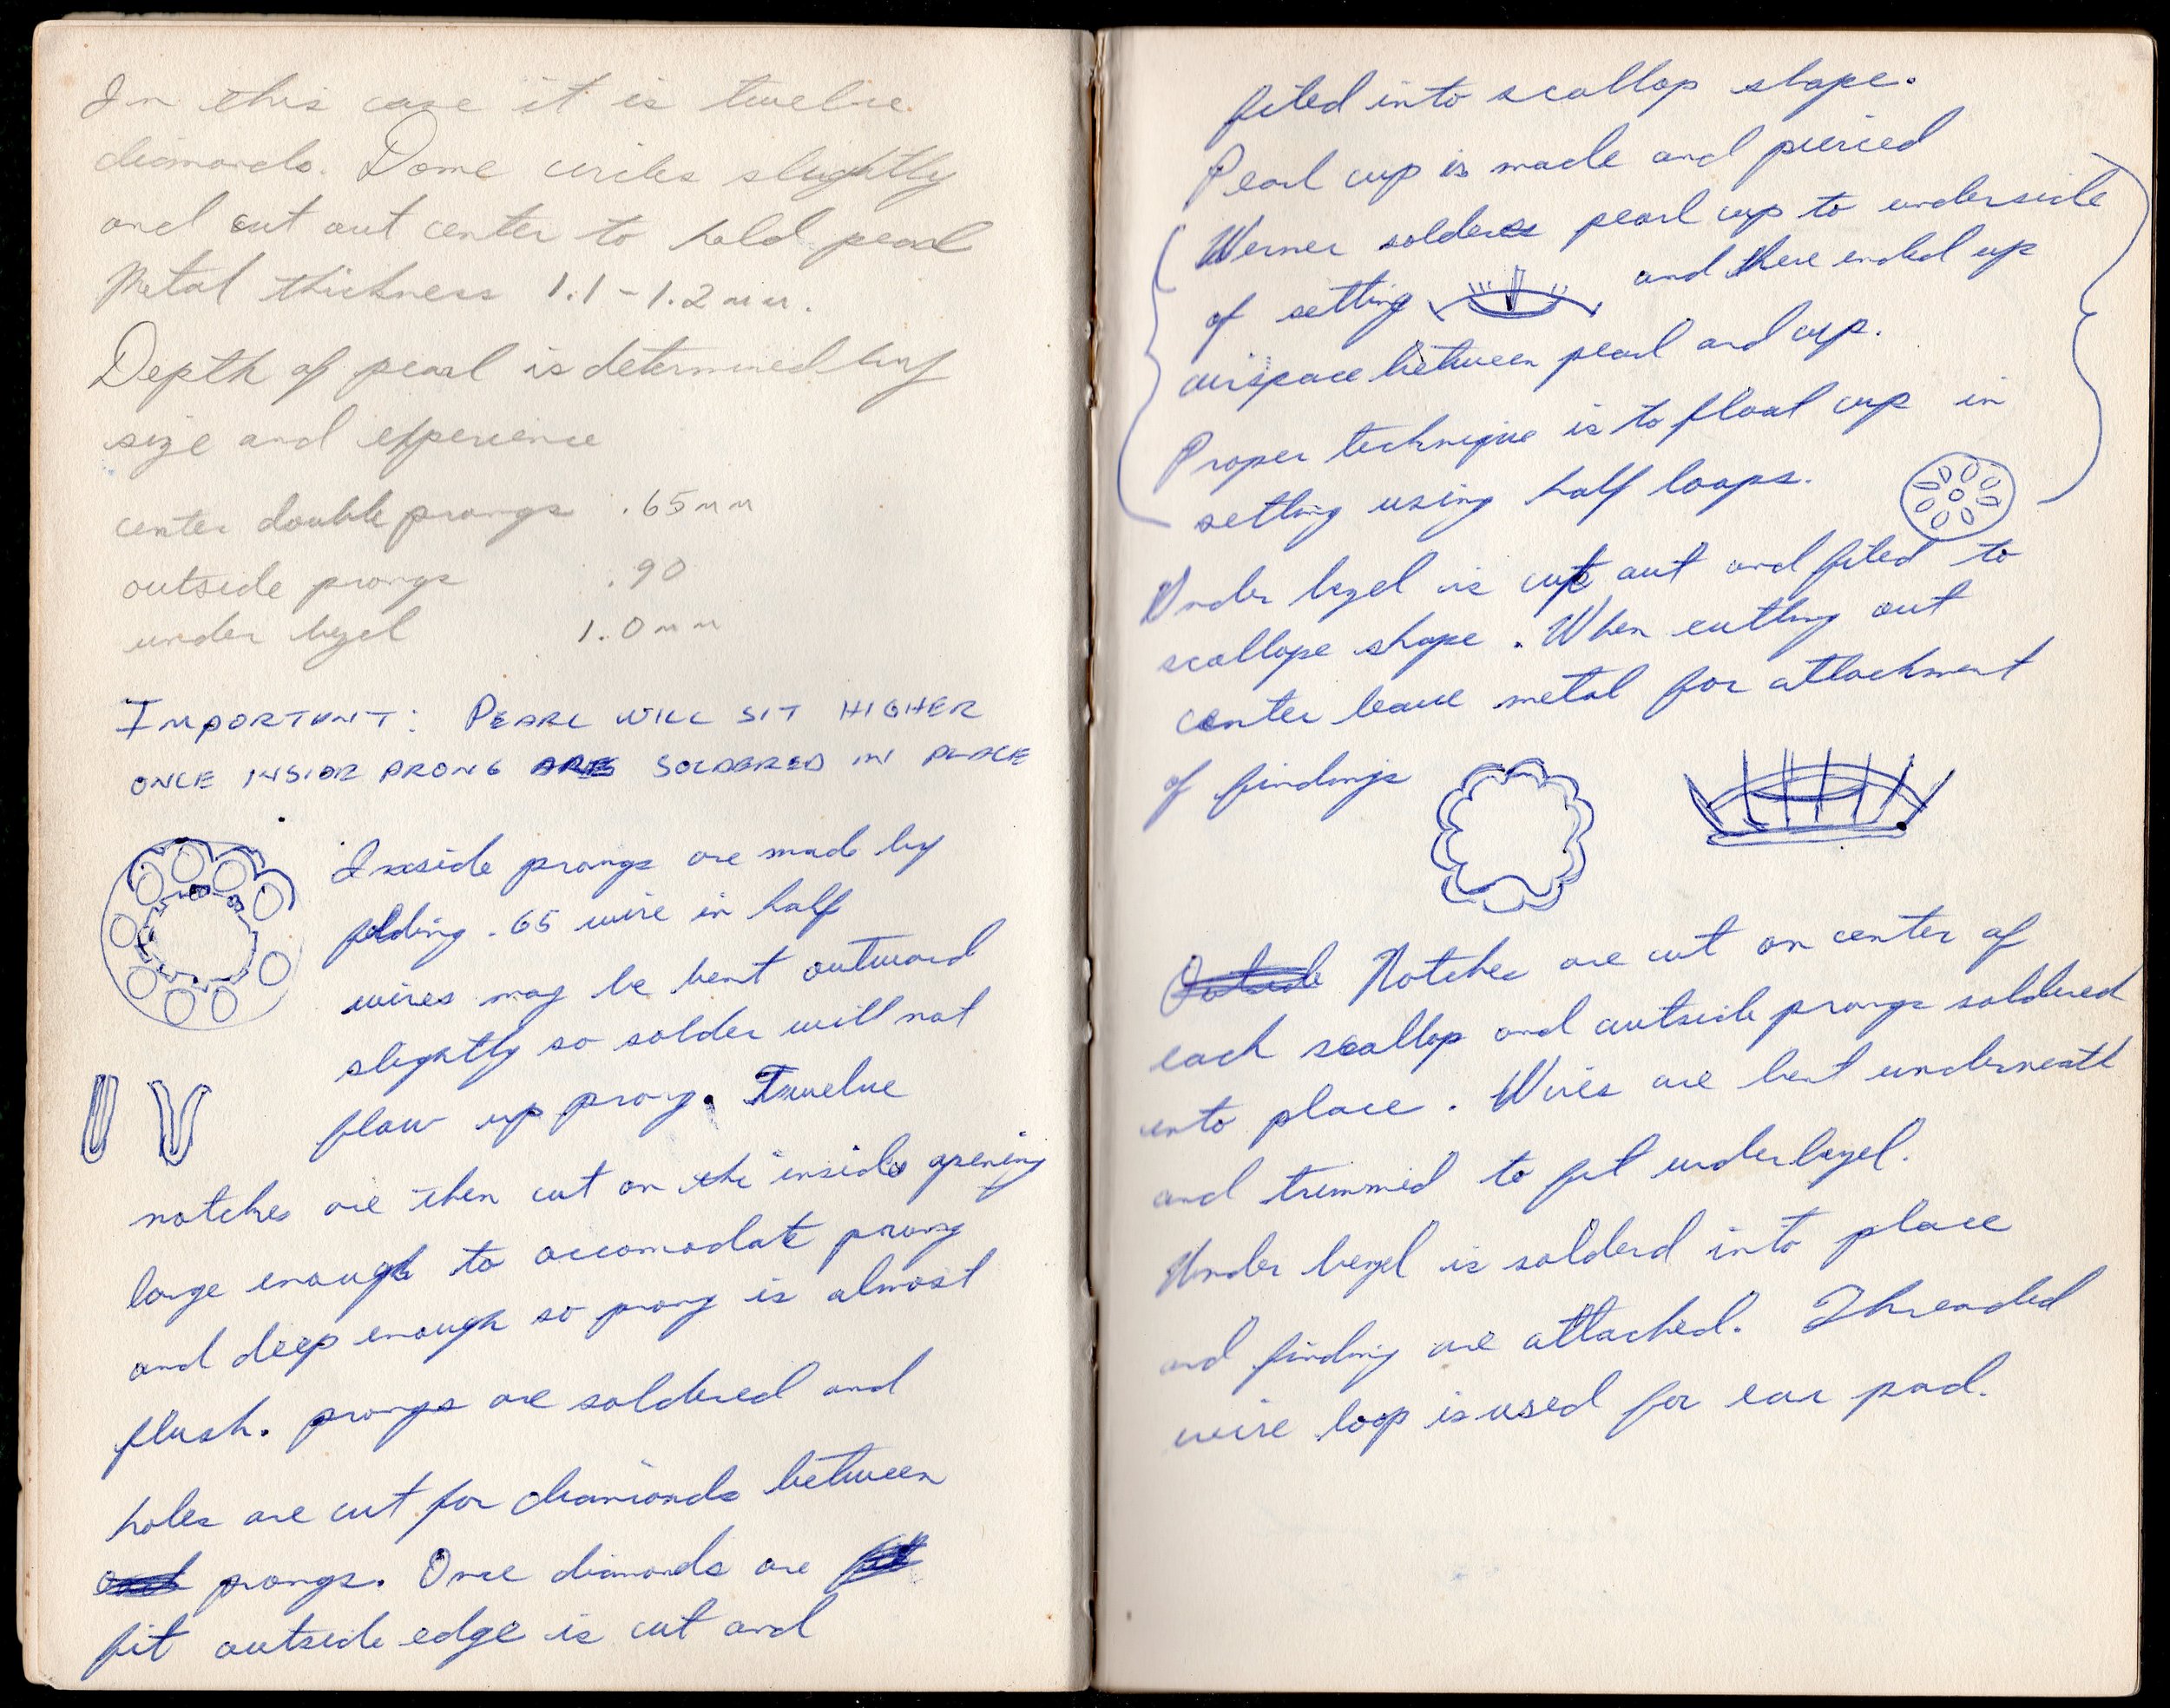 In this case it is twelve
diamonds. Dome circles slightly
and cut out center to hold pearl
Metal thickness 1.1-1.2mm.
Depth of pearl is determined by
size and experience
center double prongs .65mm
outside prongs .90
under bezel 1.0mm
IMPORTUNT: PEARL WILL SIT HIGHER
ONCE INSIDE PRONG ARE SOLDERED IN PLACE
Inside prongs are made by
folding .65 wire in half
wires may be bent outward
slightly so solder will not
flow up prong. Twelve
notches are then cut on the inside opening
large enough to accomodate prong
and deep enough so prong is almost
flush. prongs are soldered and
holes are cut for diamonds between
prongs. Once diamonds are
fit outside edge is cut and
filed into scallop shape.
Pearl cup is made and pierced
Werner solders pearl cup to underside
of setting and there ended up
airspace between pearl and cup.
Proper technique is to float cup in
setting using half loops.
Under bezel is cut out and filed to
scallope shape. When cutting out
center leave metal for attachment
of findings
Outside Notches are cut on center of
each scallop and outside prongs soldered
into place. Wires are bent underneath
and trimmed to fit underbezel.
Under bezel is solderd into place
and finding are attached. Threaded
wire loop is used for ear pad.